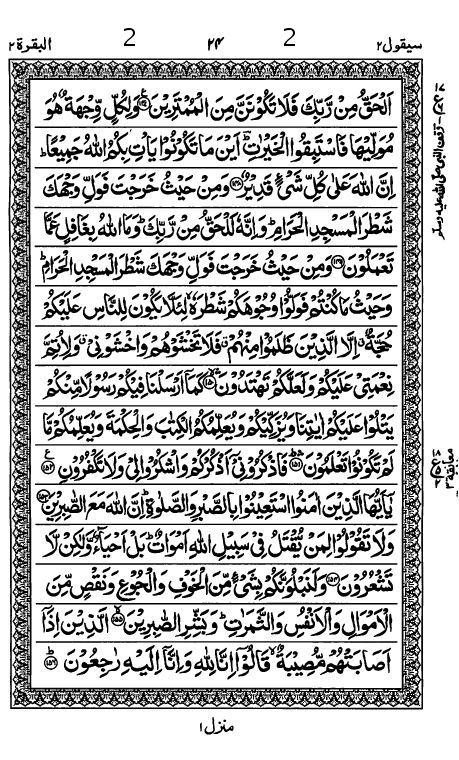 سیقول ٢ 2 ٢٤ 2 البقرة ٢
اَلْحَقُّ مِنْ رَّبِّكَ فَلَا تَكُوْنَنَّ مِنَ الْمُمْتَرِيْنَ ۝١٤٧ وَلِكُلٍّ وِّجْهَةٌ هُوَ
مُوَلِّيْهَا فَاسْتَبِقُوا الْخَيْرٰتِ ؕ اَيْنَ مَا تَكُوْنُوْا يَاْتِ بِكُمُ اللّٰهُ جَمِيْعًا ؕ
اِنَّ اللّٰهَ عَلٰى كُلِّ شَیْءٍ قَدِيْرٌ ۝١٤٨ وَمِنْ حَيْثُ خَرَجْتَ فَوَلِّ وَجْهَكَ
شَطْرَ الْمَسْجِدِ الْحَرَامِ ؕ وَاِنَّهٗ لَلْحَقُّ مِنْ رَّبِّكَ ؕ وَمَا اللّٰهُ بِغَافِلٍ عَمَّا
تَعْمَلُوْنَ ۝١٤٩ وَمِنْ حَيْثُ خَرَجْتَ فَوَلِّ وَجْهَكَ شَطْرَ الْمَسْجِدِ الْحَرَامِ ؕ
وَحَيْثُ مَا كُنْتُمْ فَوَلُّوْا وُجُوْهَكُمْ شَطْرَهٗ ۙ لِئَلَّا يَكُوْنَ لِلنَّاسِ عَلَيْكُمْ
حُجَّةٌ ۙ اِلَّا الَّذِيْنَ ظَلَمُوْا مِنْهُمْ ۗ فَلَا تَخْشَوْهُمْ وَاخْشَوْنِیْ ۗ وَلِاُتِمَّ
نِعْمَتِیْ عَلَيْكُمْ وَلَعَلَّكُمْ تَهْتَدُوْنَ ۝١٥٠ كَمَاۤ اَرْسَلْنَا فِيْكُمْ رَسُوْلًا مِّنْكُمْ
يَتْلُوْا عَلَيْكُمْ اٰيٰتِنَا وَيُزَكِّيْكُمْ وَيُعَلِّمُكُمُ الْكِتٰبَ وَالْحِكْمَةَ وَيُعَلِّمُكُمْ مَّا
لَمْ تَكُوْنُوْا تَعْلَمُوْنَ ۝١٥١ فَاذْكُرُوْنِیْۤ اَذْكُرْكُمْ وَاشْكُرُوْا لِیْ وَلَا تَكْفُرُوْنِ ۝١٥٢
يٰۤاَيُّهَا الَّذِيْنَ اٰمَنُوا اسْتَعِيْنُوْا بِالصَّبْرِ وَالصَّلٰوةِ ؕ اِنَّ اللّٰهَ مَعَ الصّٰبِرِيْنَ ۝١٥٣
وَلَا تَقُوْلُوْا لِمَنْ يُّقْتَلُ فِیْ سَبِيْلِ اللّٰهِ اَمْوَاتٌ ؕ بَلْ اَحْيَآءٌ وَّلٰكِنْ لَّا
تَشْعُرُوْنَ ۝١٥٤ وَلَنَبْلُوَنَّكُمْ بِشَیْءٍ مِّنَ الْخَوْفِ وَالْجُوْعِ وَنَقْصٍ مِّنَ
الْاَمْوَالِ وَالْاَنْفُسِ وَالثَّمَرٰتِ ؕ وَبَشِّرِ الصّٰبِرِيْنَ ۝١٥٥ الَّذِيْنَ اِذَاۤ
اَصَابَتْهُمْ مُّصِيْبَةٌ ۙ قَالُوْۤا اِنَّا لِلّٰهِ وَاِنَّاۤ اِلَيْهِ رٰجِعُوْنَ ۝١٥٦
منزل ١